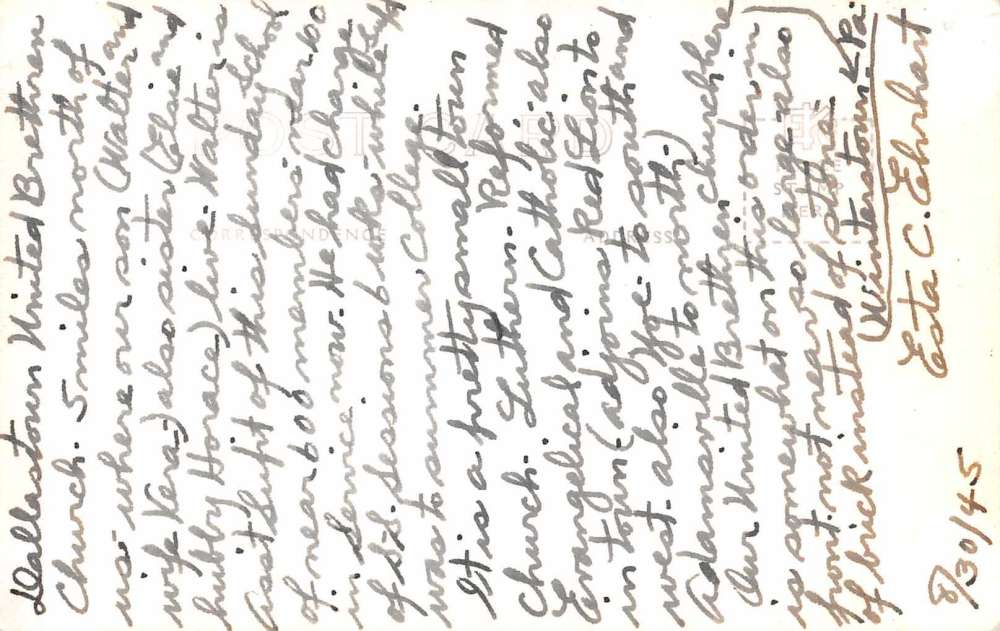 Dallastown United Brethren
Church. 5 miles north of
us- where our son (Walter and
wife Vera) also sister (Elsie and
hubby Horace) live- Walter is
Asst Supt of this Sunday School
of near 600 members- over 60
in Service now. He had charge
of S.S. sessions 6 wks- while Supt
was to summer College.
It is a pretty small town
Church. Luthern. Reformed
Evangelical and Catholic also
in town (adjoins Red Lion to
west- also Yoe- to south and
Adamsville to north.)
Our United Brethren church here
is somewhat on this order in
front. not near so large- also
of brick instead of stone.
(Winterstown, Pa.
Esta C. Ehrhart
8/30/45
POST CARD
CORRESPONDENCE
ADDRESS
PLACE
STAMP
HERE